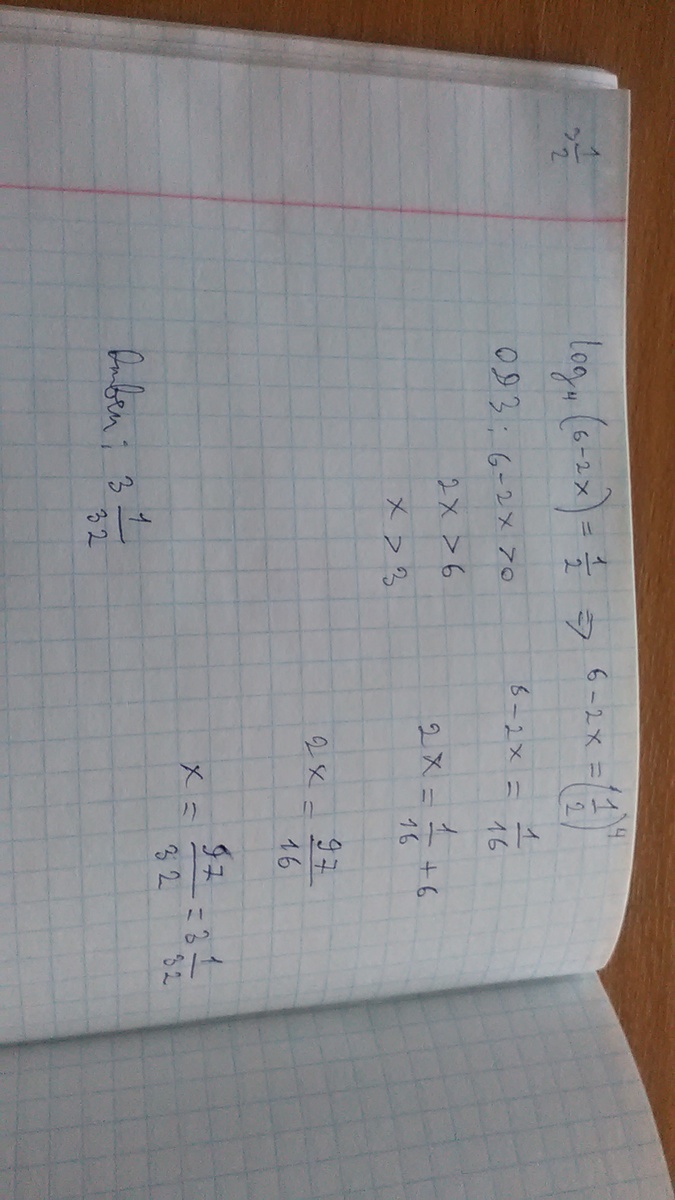 1/2
log₄(6-2x) = 1/2 ⇒ 6-2x = (1/2)⁴
ОДЗ: 6-2x>0
2x>6
x>3
6-2x = 1/16
2x = 1/16 + 6
2x = 97/16
x = 97/32 = 3 1/32
Ответ: 3 1/32